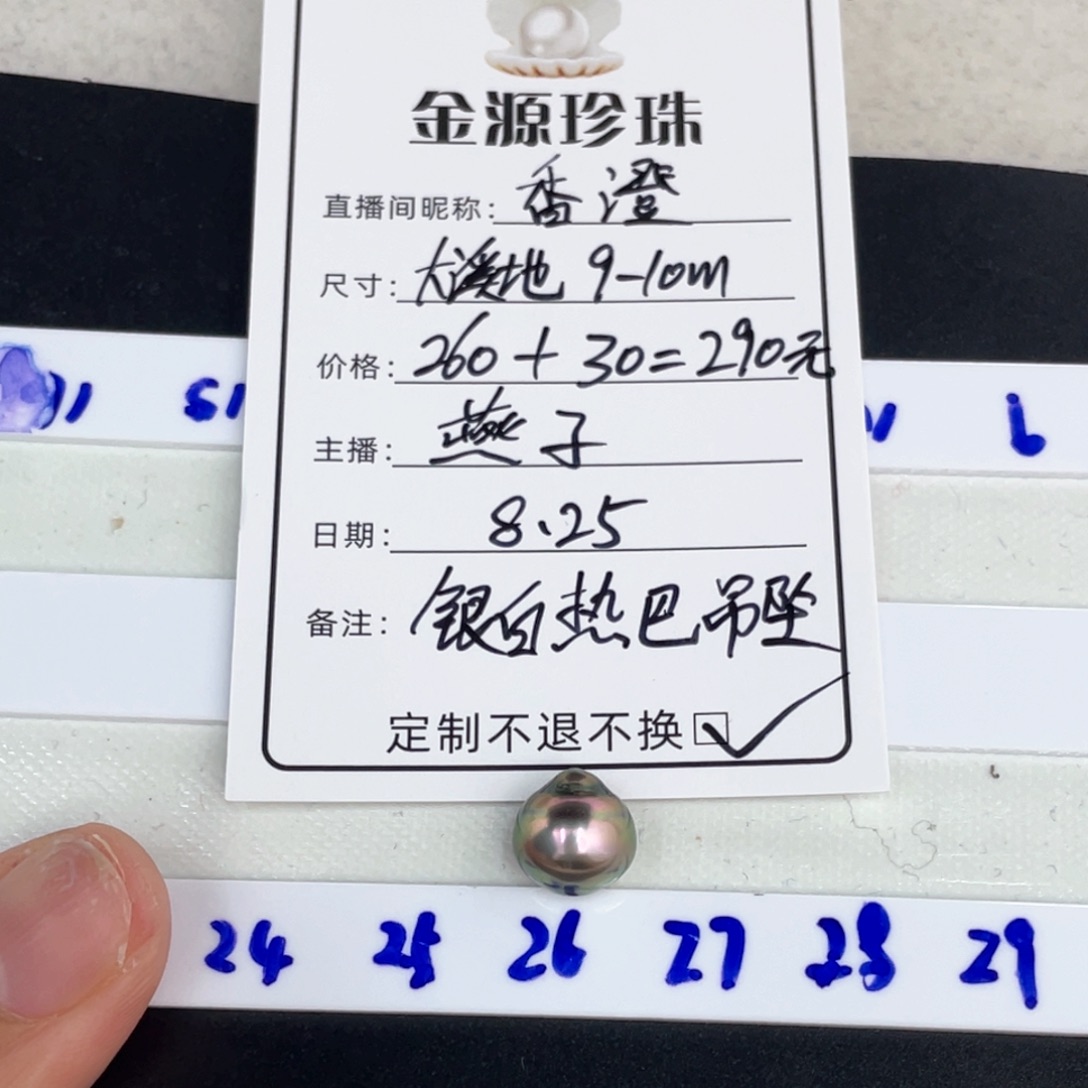 金源珍珠
直播间昵称: 香澄
尺寸: 大溪地 9-10m
价格: 260+30=290元
主播: 燕子
日期: 8.25
备注: 银白热巴吊坠
定制不退不换☑
24 25 26 27 28 29